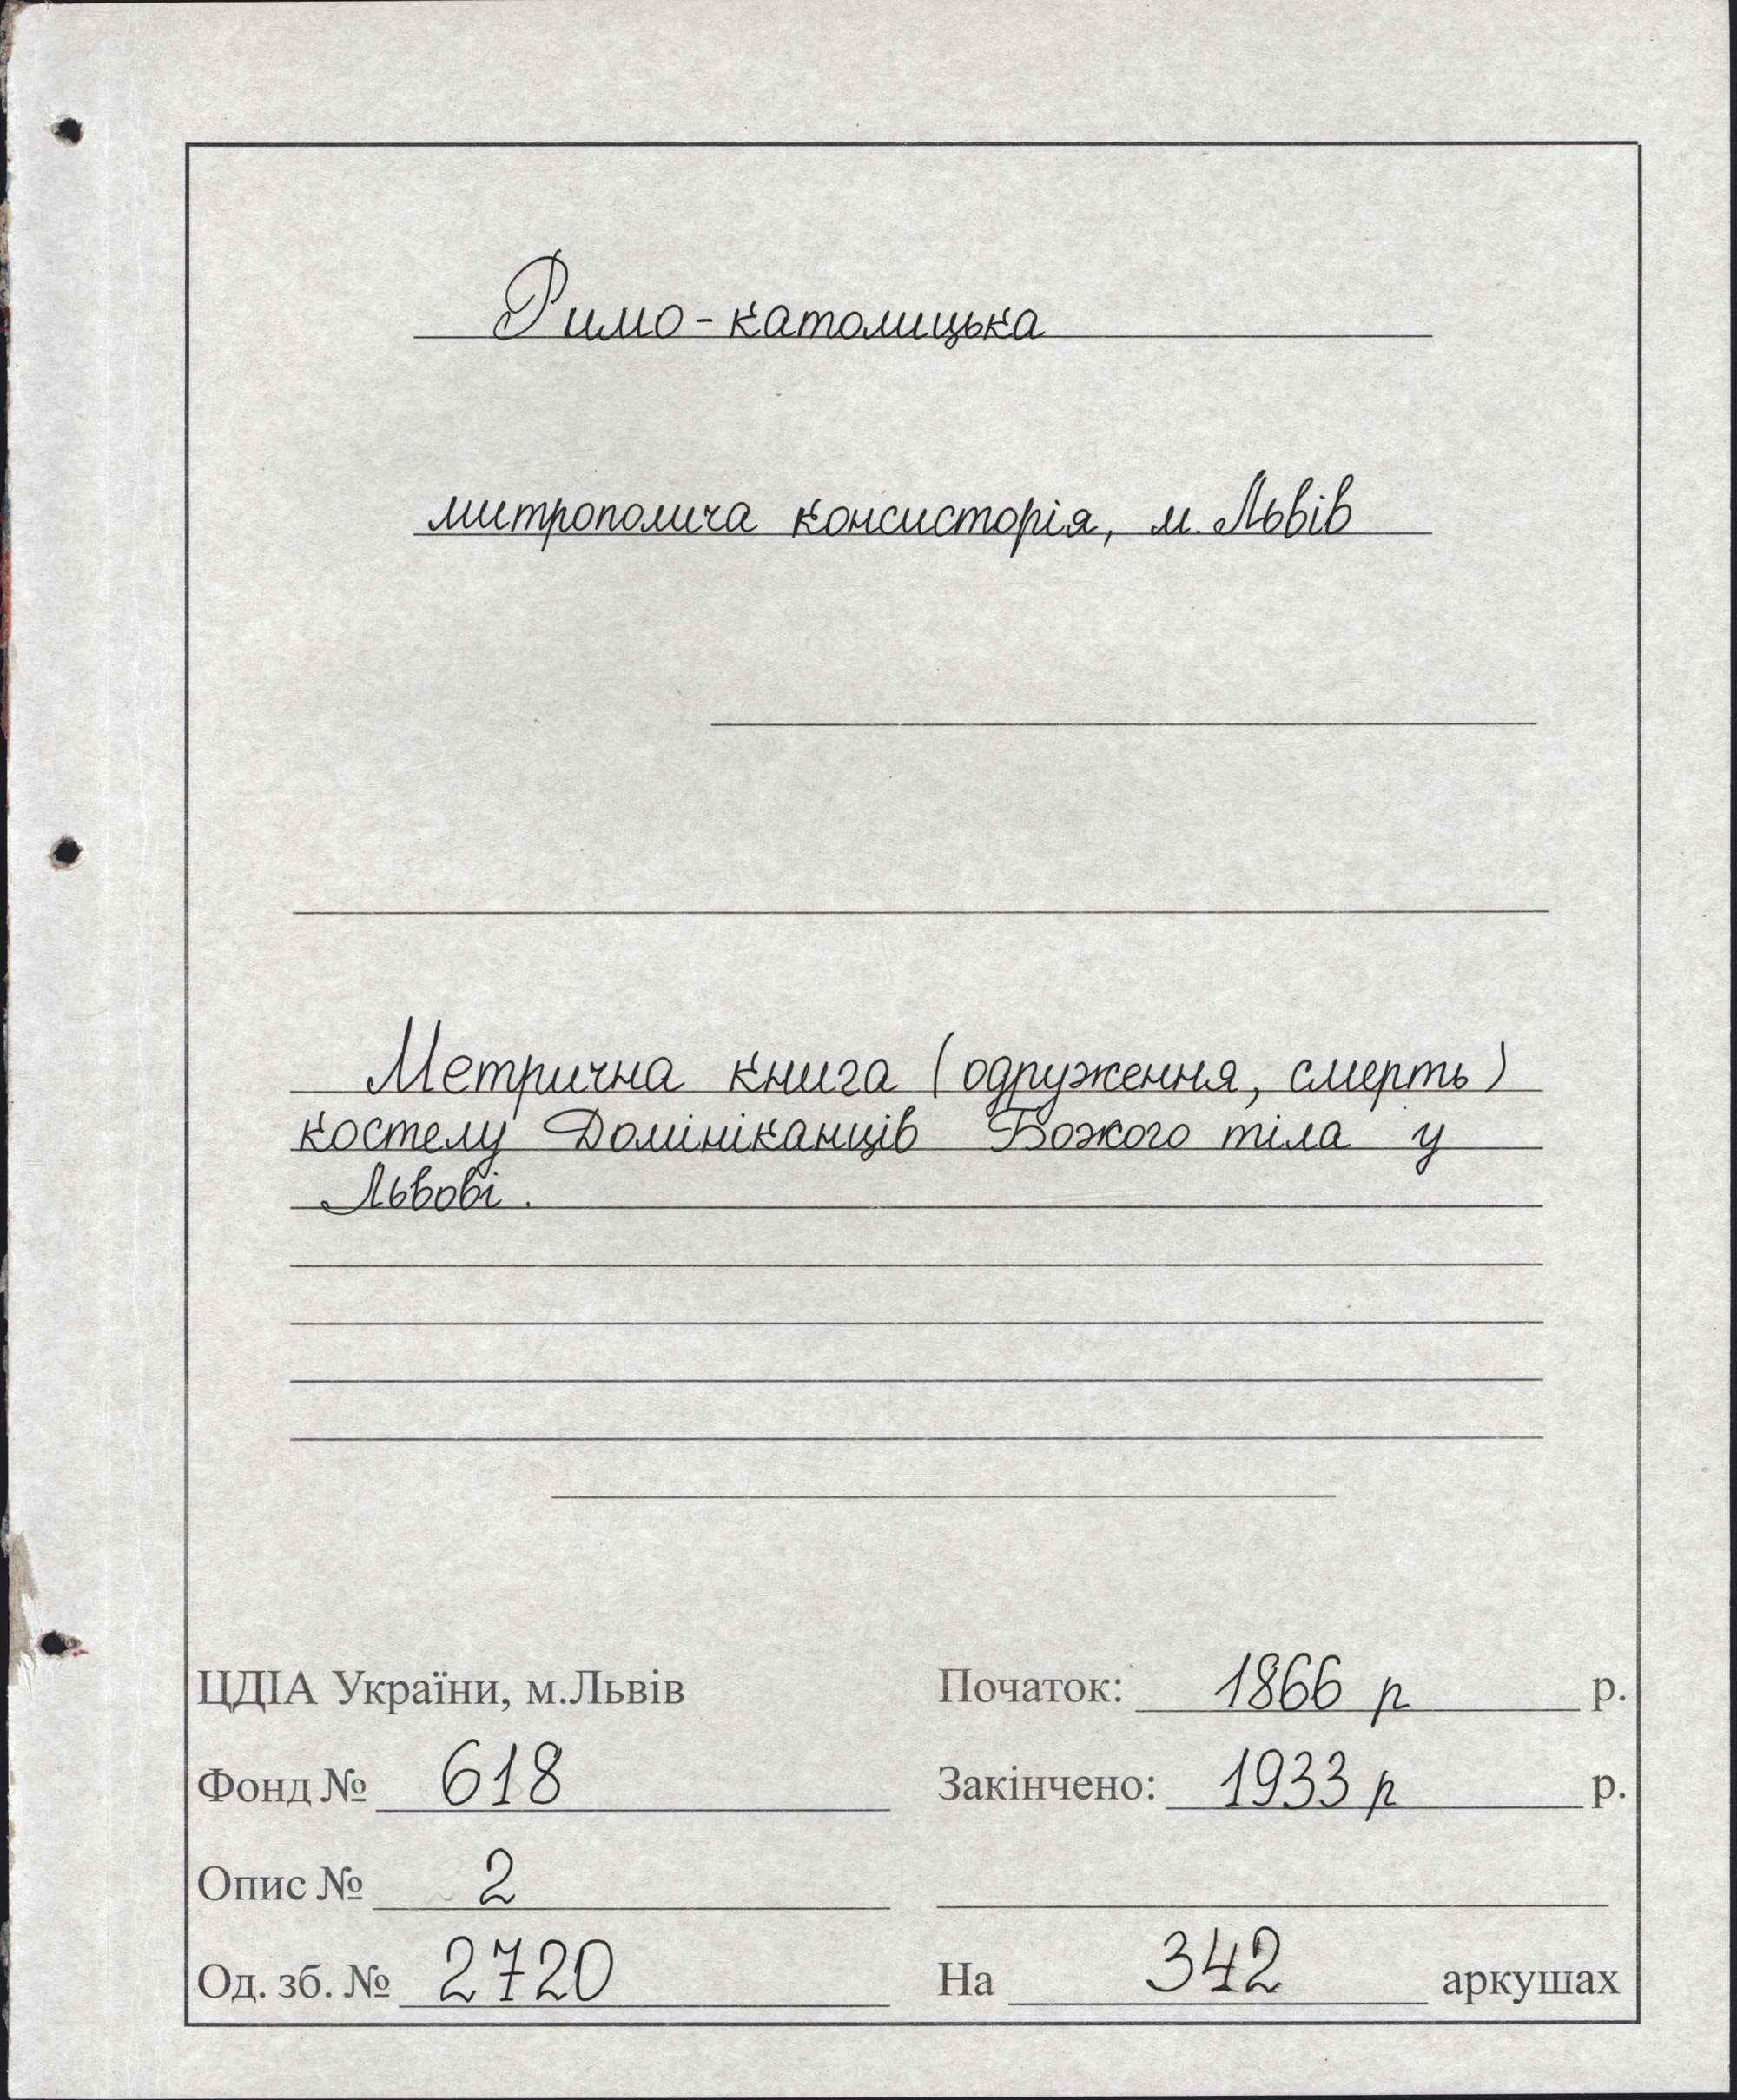 Римо-католицька
митрополича консисторія, м. Львів
Метрична книга (одруження, смерть)
костелу Домініканців Божого тіла у
Львові.
ЦДІА України, м.Львів
Початок: 1866 р р.
Фонд № 618
Закінчено: 1933 р р.
Опис № 2
Од. зб. № 2720
На 342 аркушах